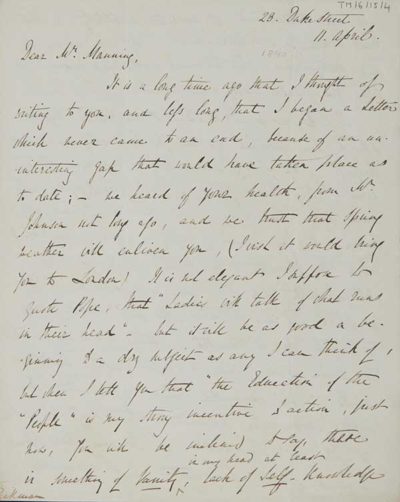 TM/6/15/4
28. Duke Street
11. April.
1840
Dear Mr. Manning,
It is a long time ago that I thought of
writing to you, and less long, that I began a Letter
which never came to an end, because of an un-
interesting gap that would have taken place as
to date; - we heard of your health, from Mr.
Johnson not long ago, and we trust that Spring
weather will enliven you, (I wish it would bring
you to London) It is not elegant I suppose to
quote Pope, that "Ladies will talk of what runs
in their head" - but it will be as good a be-
-ginning to a dry subject as any I can think of,
but when I tell you that "the Education of the
"People" is my strong incentive to action, just
now, you will be inclined to say, there
in my head at least
is something of Vanity, lack of Self-Knowledge